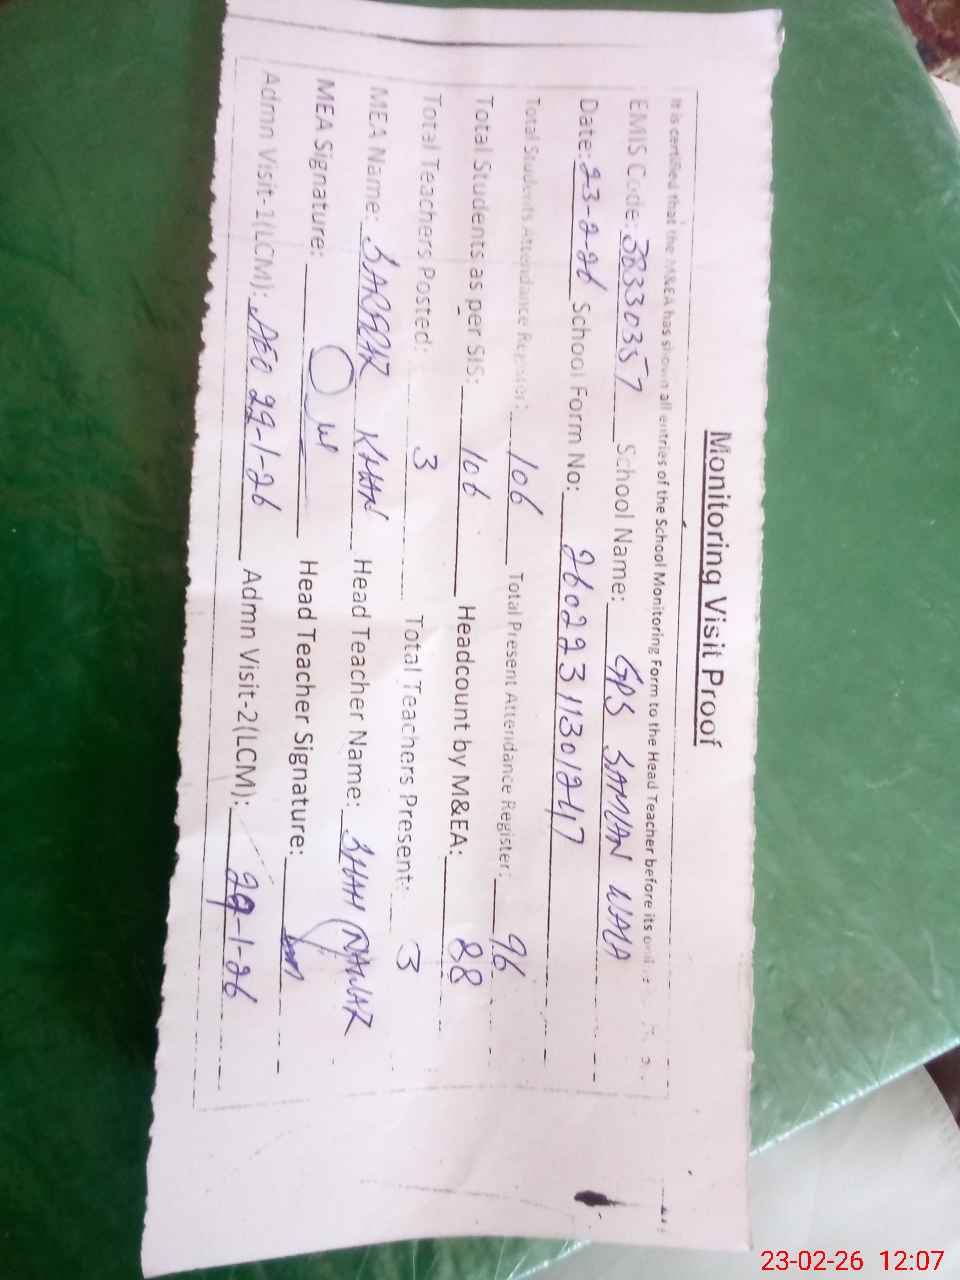 Monitoring Visit Proof
It is certified that the M&EA has shown all entries of the School Monitoring Form to the Head Teacher before its
EMIS Code: 38330357 School Name: GPS SAMAN WALA
Date: 23-2-26 School Form No: 26022311301247
Total Students Attendance Register: 106 Total Present Attendance Register: 96
Total Students as per SIS: 106 Headcount by M&EA: 88
Total Teachers Posted: 3 Total Teachers Present: 3
MEA Name: KHAN Head Teacher Name: SHAH NAWAZ
MEA Signature: Head Teacher Signature:
Admn Visit-1(LCM): AEO 29-1-26 Admn Visit-2(LCM): 29-1-26
23-02-26 12:07